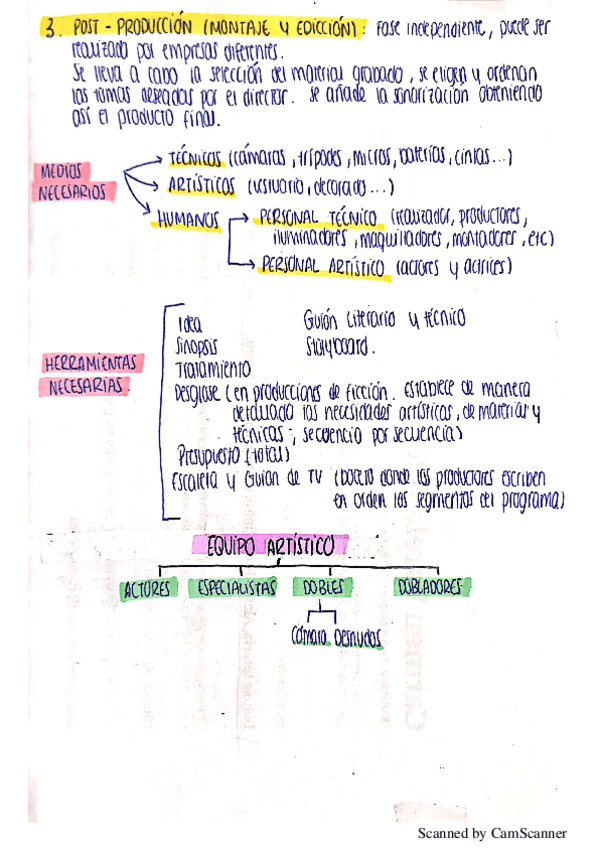 3. POST - PRODUCCIÓN (MONTAJE Y EDICCIÓN): Fase independiente, puede ser
realizado por empresas diferentes.
Se lleva a cabo la selección del material grabado, se eligen y ordenan
las tomas deseadas por el director. Se añade la sonorización obteniendo
así el producto final.
MEDIOS NECESARIOS
TÉCNICOS (cámaras, trípodes, micros, baterías, cintas...)
ARTÍSTICOS (vestuario, decorado...)
HUMANOS
PERSONAL TÉCNICO (realizador, productores,
iluminadores, maquilladores, montadores, etc)
PERSONAL ARTÍSTICO (actores y actrices)
HERRAMIENTAS
NECESARIAS.
Idea Guión literario y técnico
Sinopsis Storyboard.
Tratamiento
Desglose (en producciones de ficción. Establece de manera
detallada las necesidades artísticas, de material y
técnicas, secuencia por secuencia)
Presupuesto (total)
Escaleta y Guion de TV (Docto donde los productores escriben
en orden los segmentos del programa)
EQUIPO ARTÍSTICO
ACTORES ESPECIALISTAS DOBLES DOBLADORES
Cámara Desnudos
Scanned by CamScanner